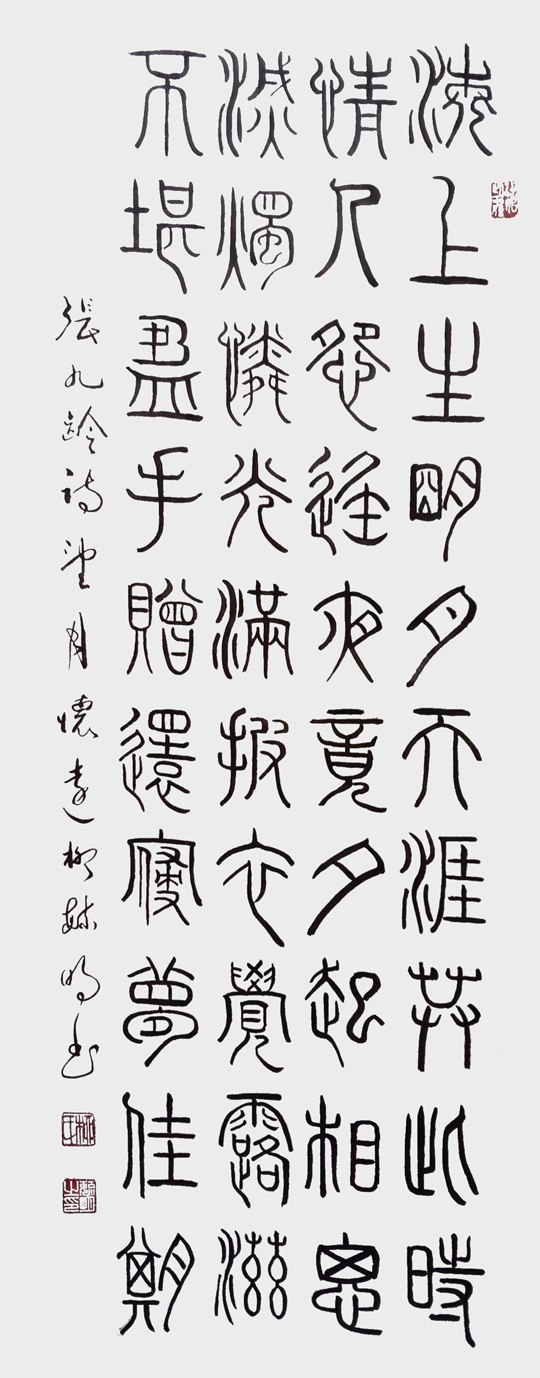 海上生明月天涯共此時
情人怨遙夜竟夕起相思
滅燭憐光滿披衣覺露滋
不堪盈手贈還寢夢佳期
張九齡詩望月懷遠柳